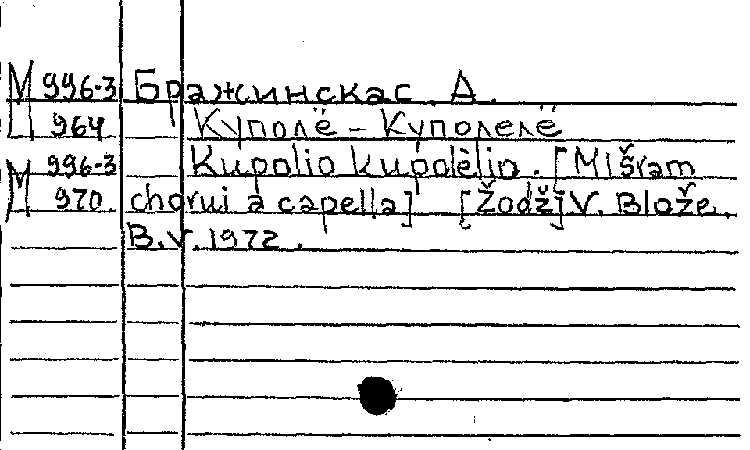 М 996-3 Бражинскас. А.
964 Куполё - Куполелё
М 996-3 Kupolio kupolėlio. [Mišram
970 chorui a capella] [Žodž] V. Blože.
B.V. 1972.